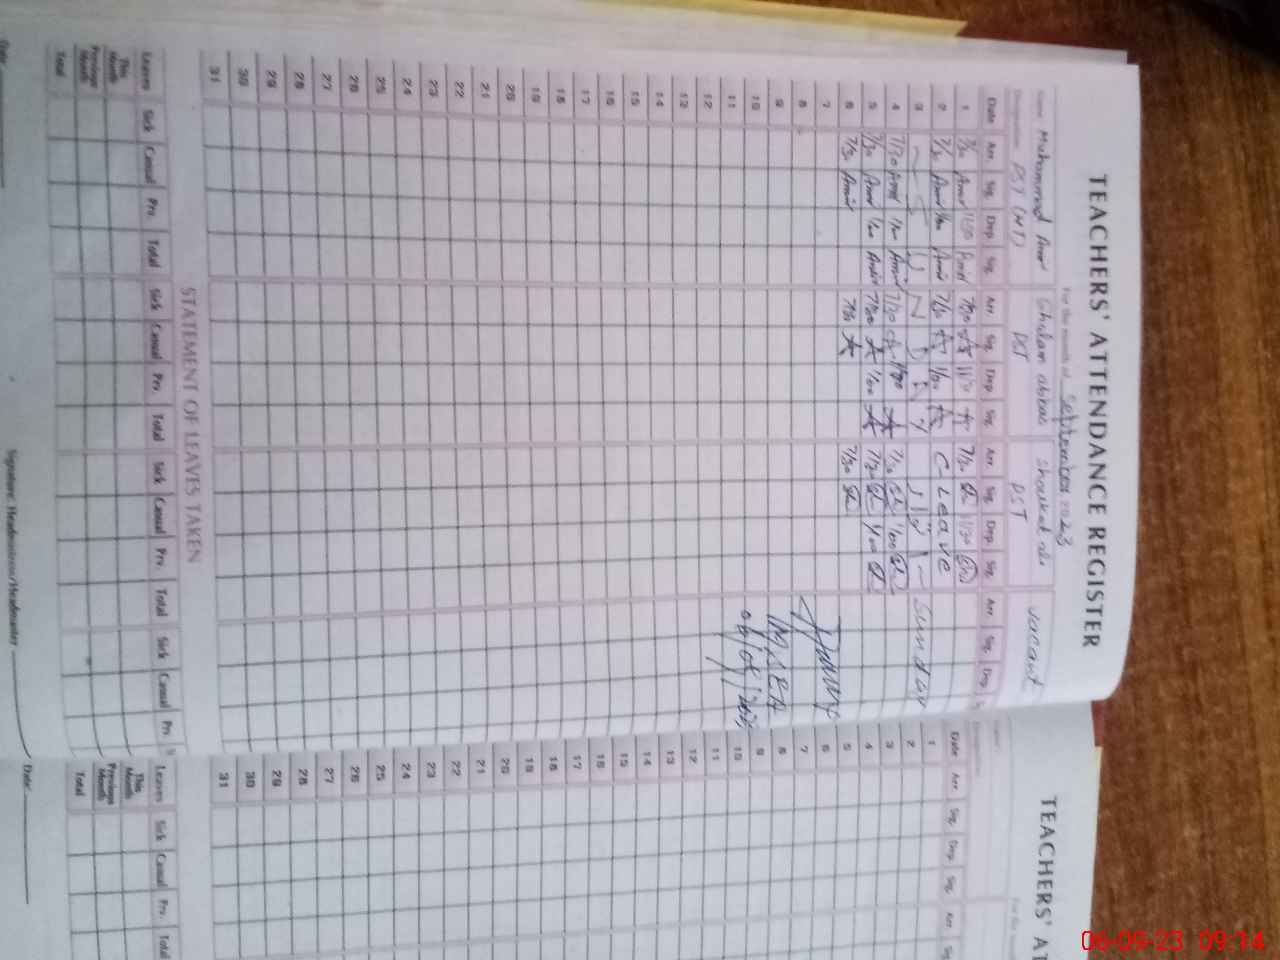 TEACHERS' ATTENDANCE REGISTER
For the month of September 2023
Name Muhammad Amir Ghulam abbas shoukat ali vacant
Designation PST (NT) PST PST
Date Arr. Sig. Dep. Sig. Arr. Sig. Dep. Sig. Arr. Sig. Dep. Sig. Arr. Sig. Dep.
1 7/30 Amir 11/30 Amir 7/30 11/30 7/30 Sh 11/30 Sh
2 7/30 Amir Amir 7/30 1/00 C Leave
3 S U N D A Y Sunday
4 7/30 Amir 1/00 Amir 7/30 1/00 7/30 Sh 1/00 Sh
5 7/30 Amir 1/00 Amir 7/30 1/00 7/30 Sh 1/00 Sh
6 7/30 Amir 7/30 7/30 Sh
7
8
9 MSEA
10
11
12
13
14
15
16
17
18
19
20
21
22
23
24
25
26
27
28
29
30
31
STATEMENT OF LEAVES TAKEN
Leaves Sick Casual Prv. Total Sick Casual Prv. Total Sick Casual Prv. Total Sick Casual Prv.
This Month
Previous Month
Total
Signature: Headmistress/Headmaster Date:
TEACHERS' AT
Date Arr. Sig. Dep. Sig. Arr. Sig.
1
2
3
4
5
6
7
8
9
10
11
12
13
14
15
16
17
18
19
20
21
22
23
24
25
26
27
28
29
30
31
Leaves Sick Casual Prv. Total
This Month
Previous Month
Total
06-09-23 09:14